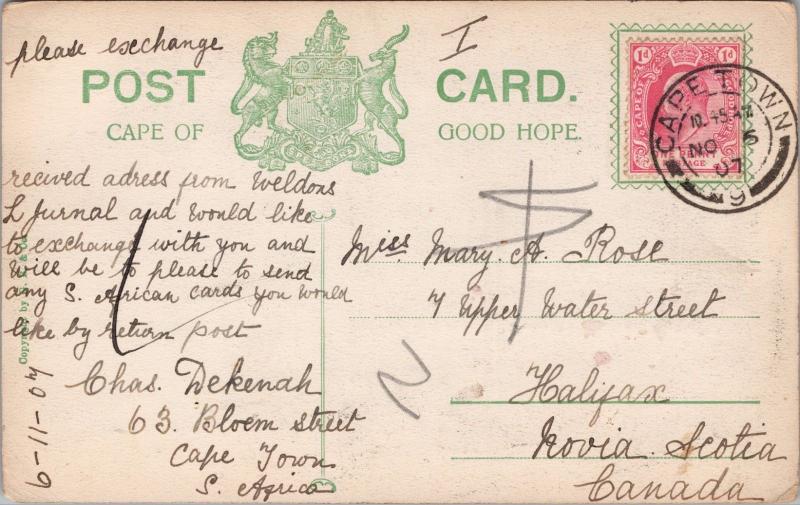 please exchange
I
POST CARD.
CAPE OF GOOD HOPE.
1d 1d
CAPE OF
ONE PENNY
CAPE TOWN
10.45 AM
NO 6
07
9
recived adress from Weldons
L Jurnal and would like
to exchange with you and
will be to please to send
any S. African cards you would
like by return post
Chas. Dekenah
63. Bloem street
Cape Town
S. Africa
6-11-07
Copyright by
Miss Mary. A. Rose
7 Upper Water street
Halifax
Novia. Scotia
Canada